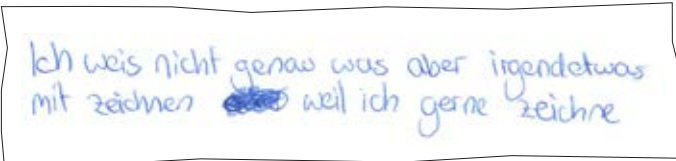 Ich weis nicht genau was aber irgendetwas
mit zeichnen weil ich gerne zeichne